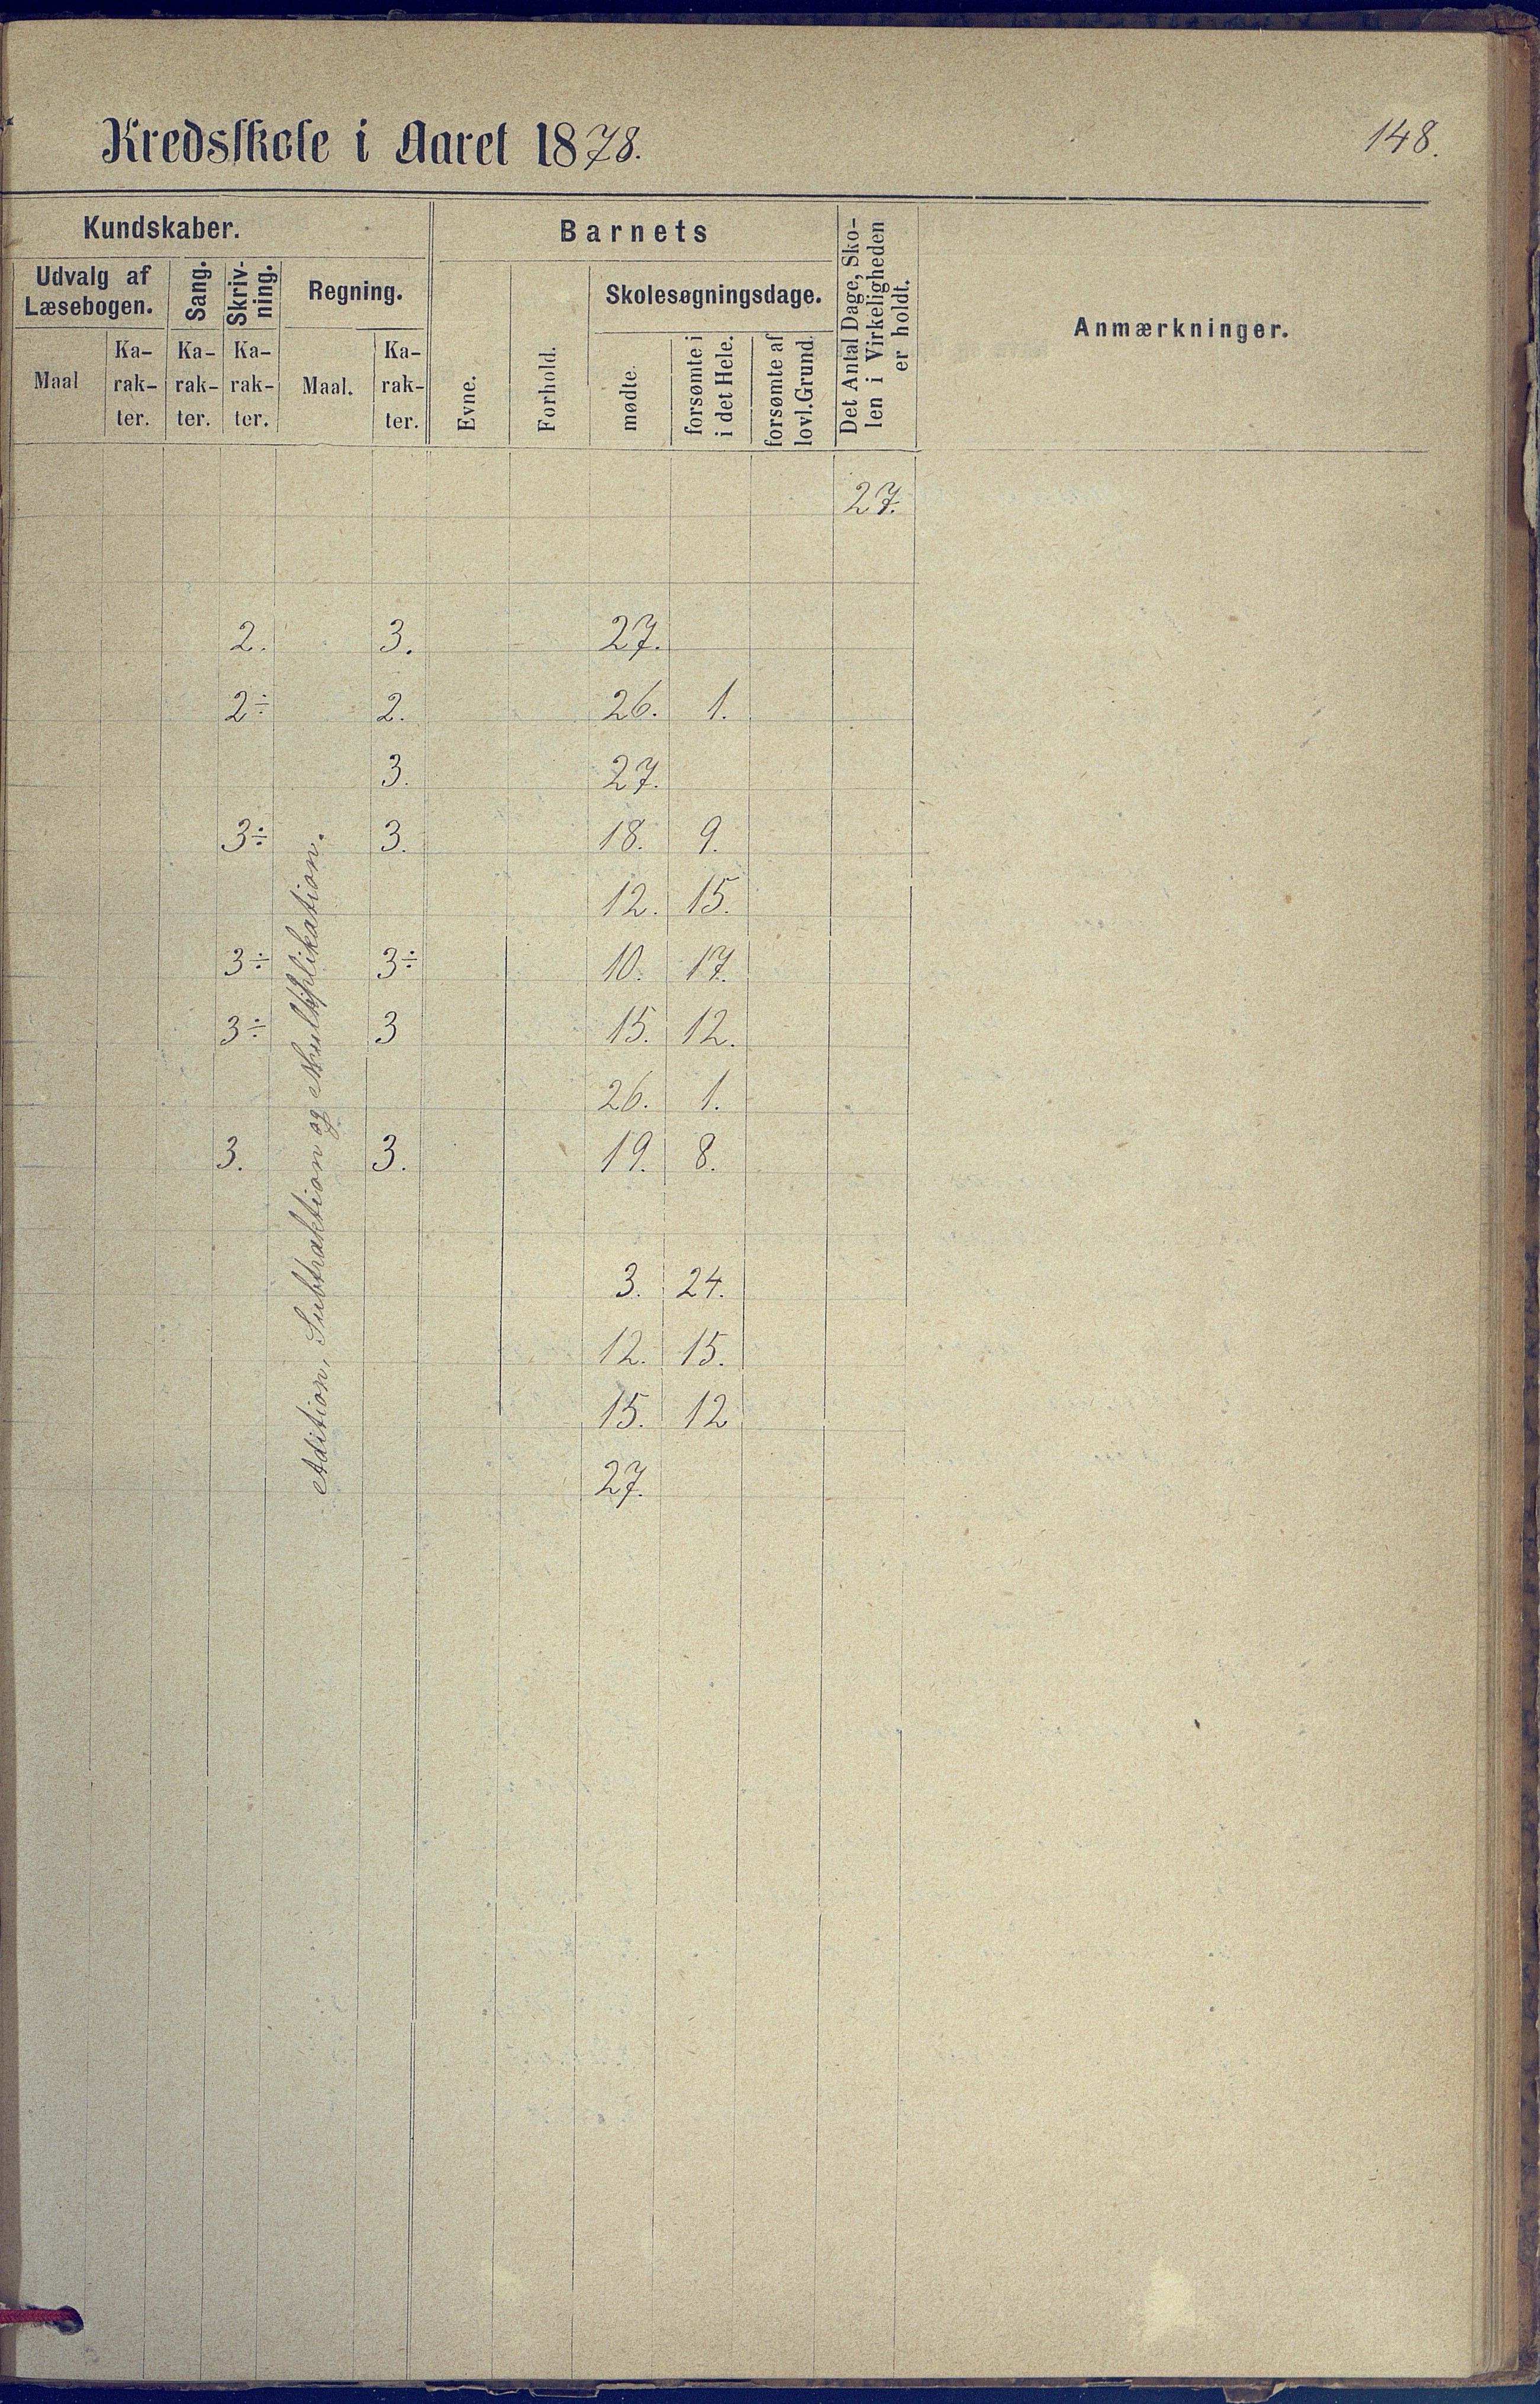 Kredsskole i Aaret 1878.
148.
Kundskaber.
Barnets
Det Antal Dage, Sko-
len i Virkeligheden
er holdt.
Anmærkninger.
Udvalg af
Læsebogen.
Sang.
Skriv-
ning.
Regning.
Skolesøgningsdage.
Maal
Ka-
rak-
ter.
Ka-
rak-
ter.
Ka-
rak-
ter.
Maal.
Ka-
rak-
ter.
Evne.
Forhold.
mødte.
forsømte i
i det Hele.
forsømte af
lovl. Grund.
27.
2. 3. 27.
2÷ 2. 26. 1.
3. 27.
3÷ 3. 18. 9.
12. 15.
3÷ 3÷ 10. 17.
3÷ 3 15. 12.
26. 1.
3. 3. 19. 8.
3. 24.
12. 15.
15. 12
27.
Adition, Subtraktion og Multiplikation.